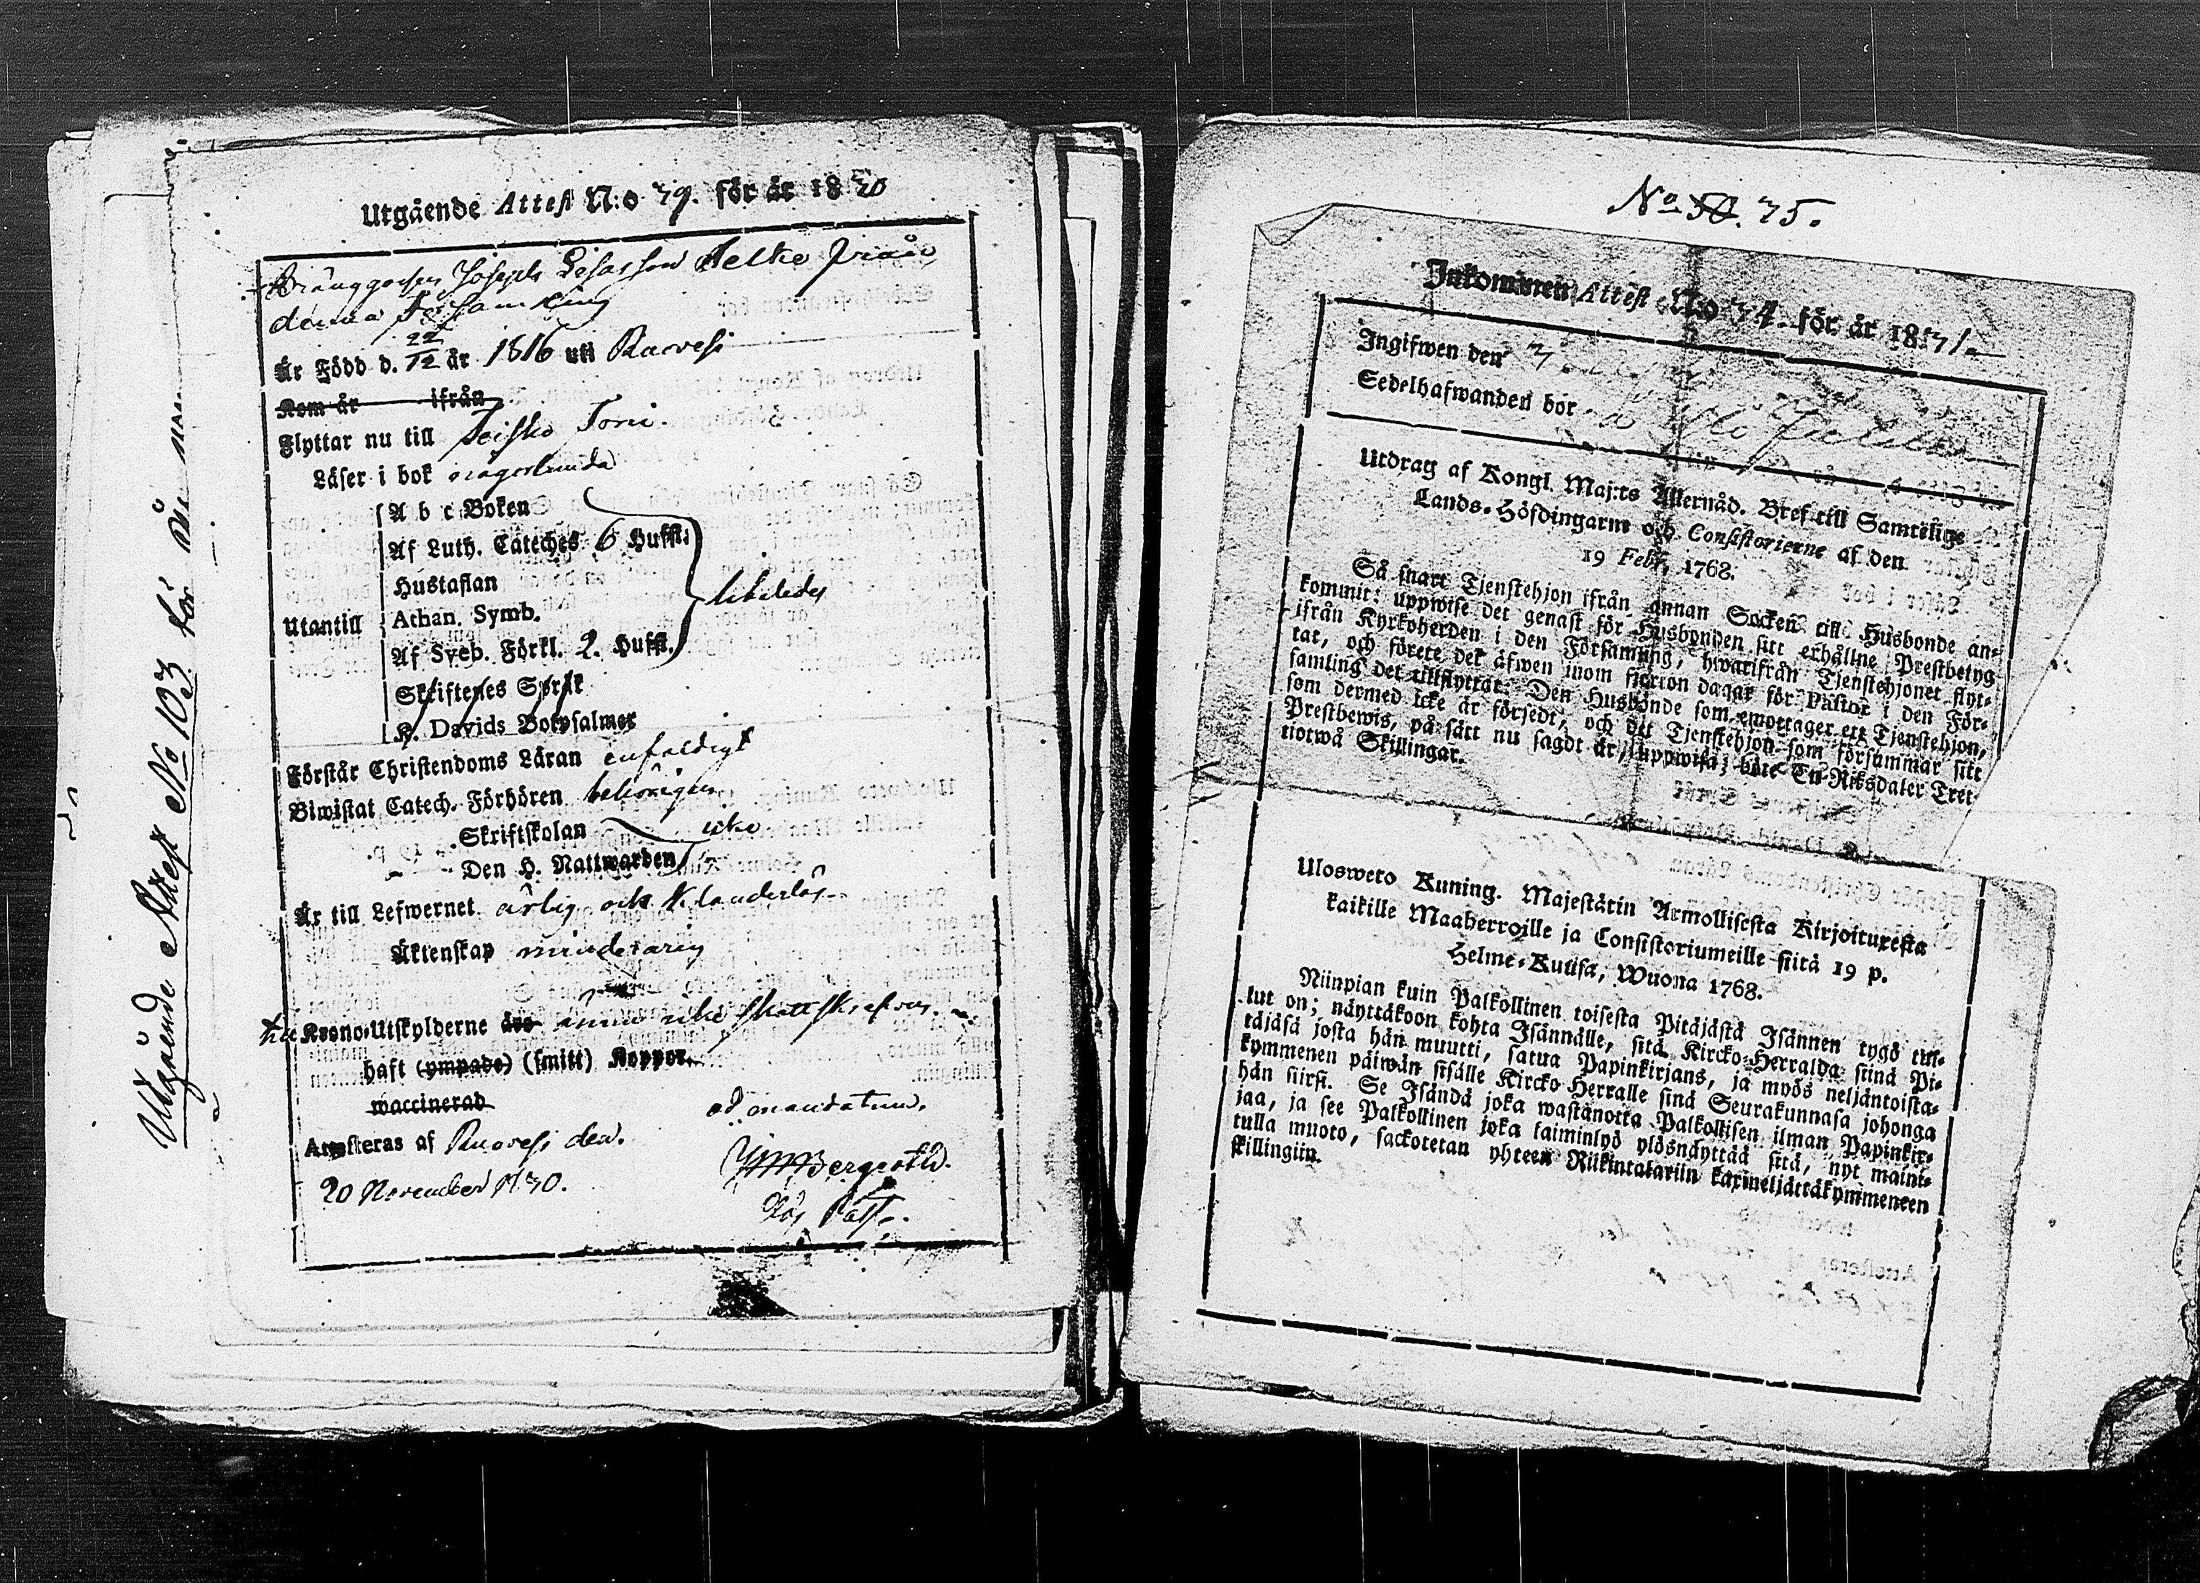 Utgående Attest No 103 för
Utgående Attest N:o 39. för år 1830
Dränggossen Joseph från
denna Församling
Är Född d. 22/12 år 1816 uti Ruovesi
Kom år ifrån
Flyttar nu till Teisko
Läser i bok någorlunda
Utantill
A b c Boken
Af Luth. Cateches 6 Huffst.
Hustaflan
Athan. Symb.
Af Sveb. Förkl. 2. Huffl.
likaledes
Skriftenes Språk
K. Davids Botpsalmer
Förstår Christendoms Läran enfaldigt
Biwistat Catech. Förhören behörigen
Skriftskolan icke
Den H. Nattwarden
Är till Lefwernet ärlig och klanderlös
Äktenskap minderårig
till Krono-Utskylderne äro ännu icke skattskrefven.
haft (ympade) (smitt) Koppor.
waccinerad
ad mandatum.
Attesteras af Ruovesi den.
20 November 1830.
Bergroth.
No 50. 35.
Inkommen Attest N:o 34. för år 1831
Ingifwen den 3
Sedelhafwanden bor
Utdrag af Kongl. Maj:ts Allernåd. Bref till Samtelige
Lands-Höfdingarne och Consistorierne af den
19 Febr. 1768.
Så snart Tjenstehjon ifrån annan Socken till Husbonde an-
kommit: uppwise det genast för Husbonden sitt erhållne Prestbetyg
ifrån Kyrkoherden i den Församling, hwarifrån Tjenstehjonet flyt-
tat, och förete det äfwen inom fjorton dagar för Pastor i den För-
samling det tillflyttat. Den Husbonde som emottager ett Tjenstehjon,
som dermed icke är försedt, och det Tjenstehjon som försummar sitt
Prestbewis, på sätt nu sagdt är, uppwisa, böte En Riksdaler Tret-
tiotwå Skillingar.
Uloswero Kuning. Majestätin Armollisesta Kirjoituxesta
kaikille Maaherroille ja Consistoriumeille siitä 19 p.
Helme-Kuusa, Wuona 1768.
Niinpian kuin Palkollinen toisesta Pitäjästä Isännen tygö tul-
lut on; näyttäkoon kohta Isännälle, sitä Kircko-Herralda siinä Pi-
täjäsä josta hän muutti, satua Papinkirjans, ja myös neljäntoista-
kymmenen päiwän sisälle Kircko Herralle siinä Seurakunnasa johonga
hän siirsi. Se Isändä joka wastanotta Palkollisen ilman Papinkir-
jaa, ja see Palkollinen joka laiminlyö ylösnäyttää sitä, nyt maini-
tulla muoto, sackotetan yhteen Riikintalariin kaxineljättäkymmeneen
skillingiin.